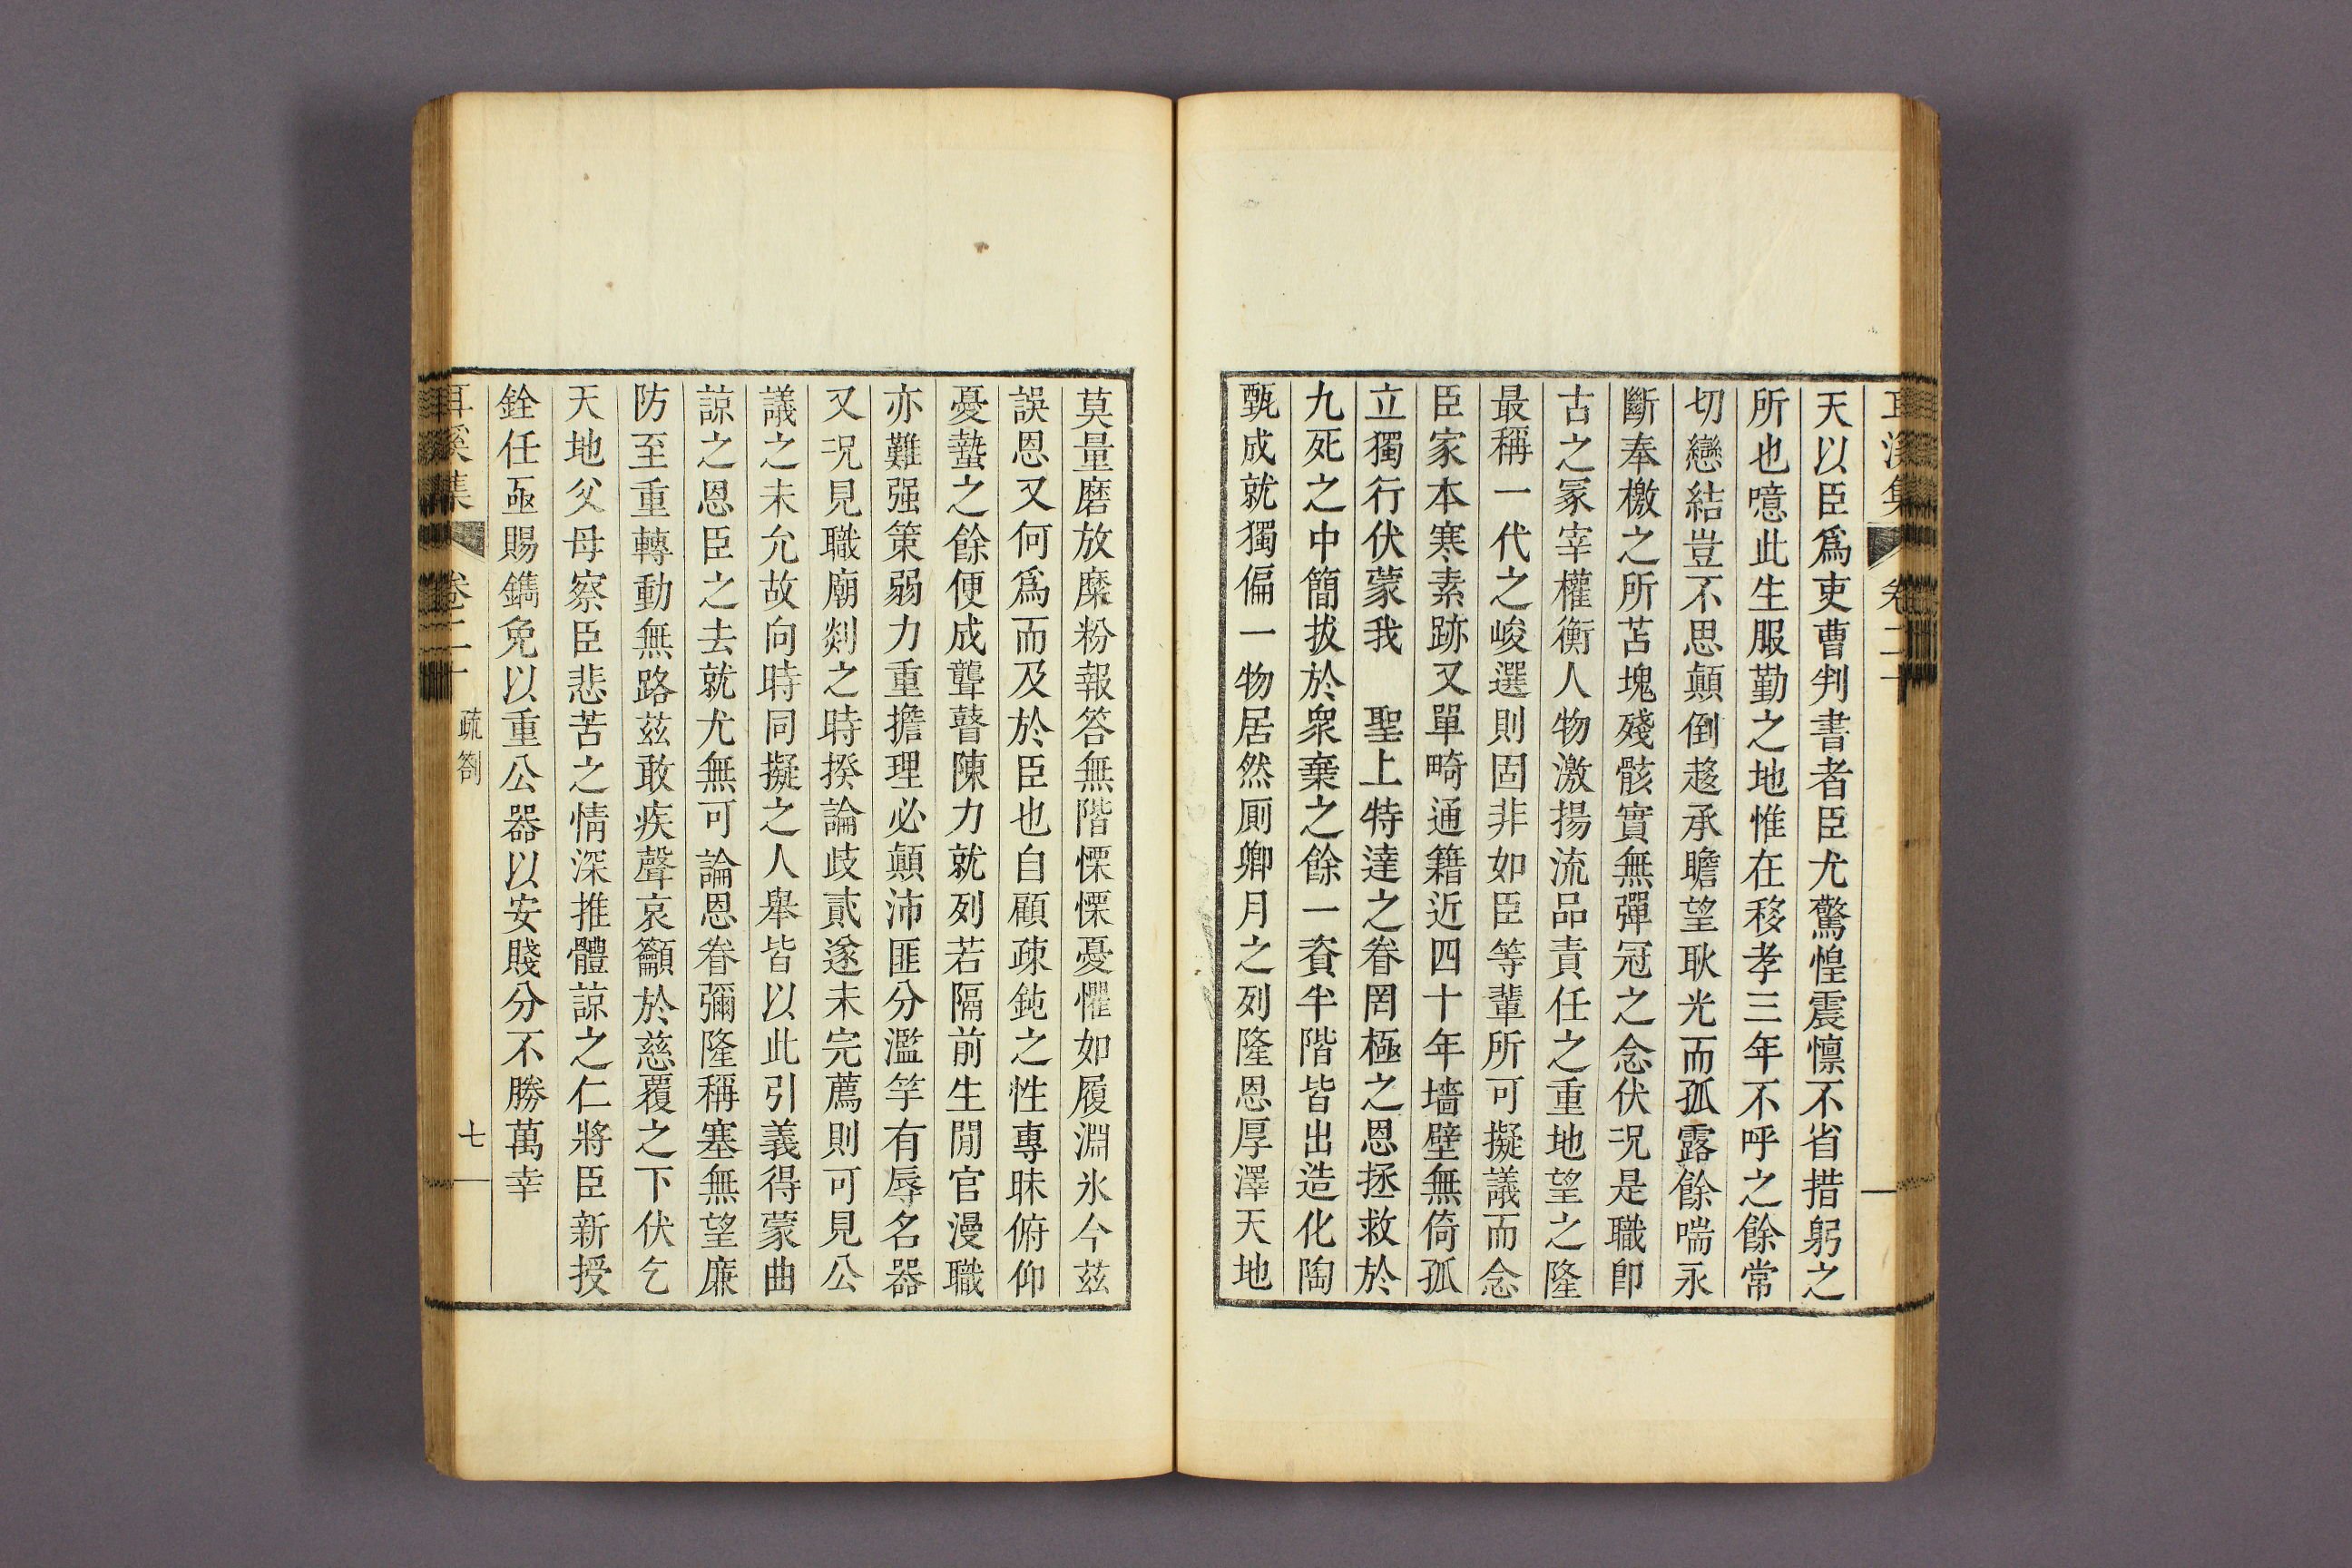 耳溪集 卷二十
天以臣爲吏曹判書者臣尤驚惶震懍不省措躬之
所也噫此生服勤之地惟在移孝三年不呼之餘常
切戀結豈不思顚倒趍承瞻望耿光而孤露餘喘永
斷奉檄之所苫塊殘骸實無彈冠之念伏况是職卽
古之冢宰權衡人物激揚流品責任之重地望之隆
最稱一代之峻選則固非如臣等輩所可擬議而念
臣家本寒素跡又單畸通籍近四十年墻壁無倚孤
立獨行伏蒙我 聖上特達之眷罔極之恩拯救於
九死之中簡拔於衆棄之餘一資半階皆出造化陶
甄成就獨偏一物居然厠卿月之列隆恩厚澤天地
莫量磨放糜粉報答無階慄慄憂懼如履淵氷今茲
誤恩又何爲而及於臣也自顧疎鈍之性專昧俯仰
憂蟄之餘便成聾瞽陳力就列若隔前生閒官漫職
亦難强策弱力重擔理必顚沛匪分濫竽有辱名器
又况見職廟剡之時揆論歧貳遂未完薦則可見公
議之未允故向時同擬之人舉皆以此引義得蒙曲
諒之恩臣之去就尤無可論恩眷彌隆稱塞無望廉
防至重轉動無路茲敢疾聲哀籲於慈覆之下伏乞
天地父母察臣悲苦之情深推體諒之仁將臣新授
銓任亟賜鐫免以重公器以安賤分不勝萬幸
耳溪集 卷二十 疏劄 七